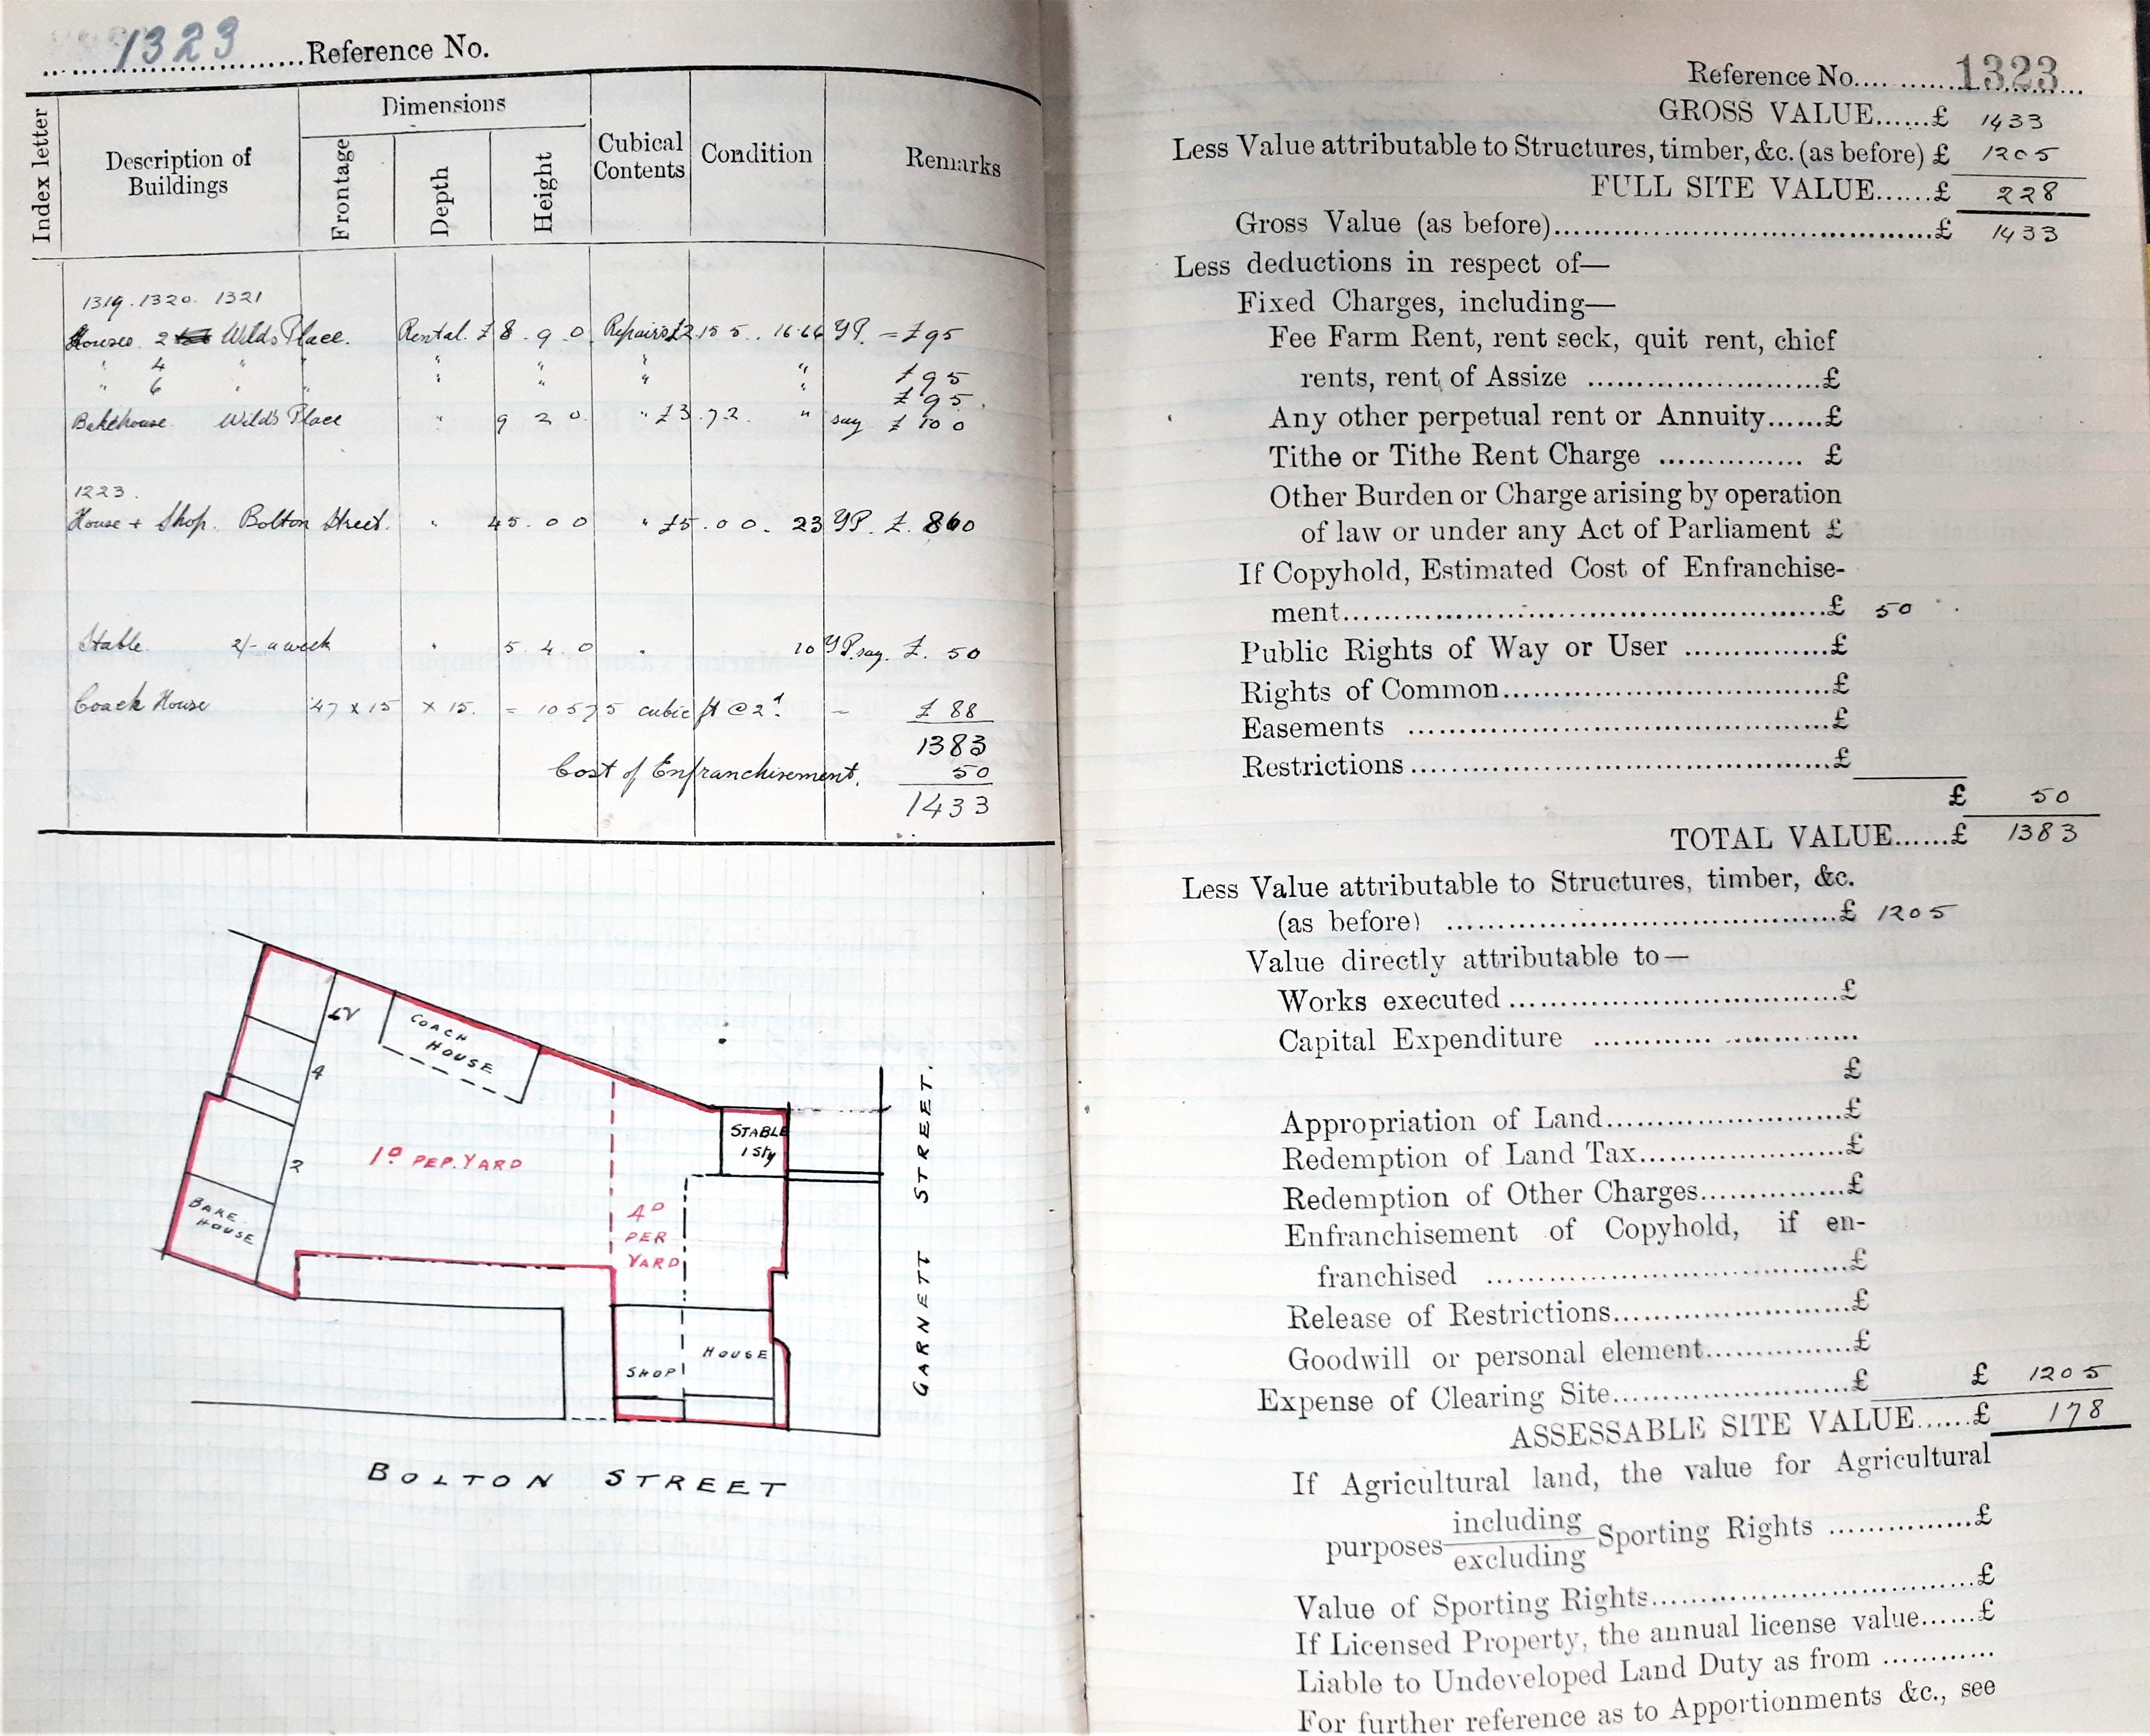 1323 Reference No.
Index letter
Description of Buildings
Dimensions
Frontage
Depth
Height
Cubical Contents
Condition
Remarks
1319. 1320. 1321
Houses 2 Wilds Place. Rental. £8. 9. 0 Repairs £2 15 5. 16.66 YP. = £95
" 4 " " " " " " £95
" 6 " " " " " " £95.
Bakehouse Wilds Place " 9 2 0 " £3. 7 2. " say £100
1223.
House + Shop. Bolton Street. " 45. 0 0 " £5. 0 0. 23 YP. £. 860
Stable. 2/- a week " 5. 4. 0 " 10 YP. say. £. 50
Coach House 47 x 15 x 15. = 10575 cubic ft @ 2d. - £ 88
1383
Cost of Enfranchisement. 50
1433
COACH
HOUSE
4
2
BAKE
HOUSE
1D PER. YARD
4D
PER
YARD
STABLE
1 Sty
SHOP
HOUSE
GARNETT STREET.
BOLTON STREET
Reference No. 1323
GROSS VALUE......£ 1433
Less Value attributable to Structures, timber, &c. (as before) £ 1205
FULL SITE VALUE......£ 228
Gross Value (as before)......£ 1433
Less deductions in respect of—
Fixed Charges, including—
Fee Farm Rent, rent seck, quit rent, chief
rents, rent of Assize ......£
Any other perpetual rent or Annuity......£
Tithe or Tithe Rent Charge ...... £
Other Burden or Charge arising by operation
of law or under any Act of Parliament £
If Copyhold, Estimated Cost of Enfranchise-
ment......£ 50
Public Rights of Way or User ......£
Rights of Common......£
Easements ......£
Restrictions......£
£ 50
TOTAL VALUE......£ 1383
Less Value attributable to Structures, timber, &c.
(as before) ......£ 1205
Value directly attributable to—
Works executed ......£
Capital Expenditure ......
£
Appropriation of Land......£
Redemption of Land Tax......£
Redemption of Other Charges......£
Enfranchisement of Copyhold, if en-
franchised ......£
Release of Restrictions......£
Goodwill or personal element......£
Expense of Clearing Site......£ £ 1205
ASSESSABLE SITE VALUE......£ 178
If Agricultural land, the value for Agricultural
purposes including
excluding Sporting Rights ......£
Value of Sporting Rights......£
If Licensed Property, the annual license value......£
Liable to Undeveloped Land Duty as from ......
For further reference as to Apportionments &c., see